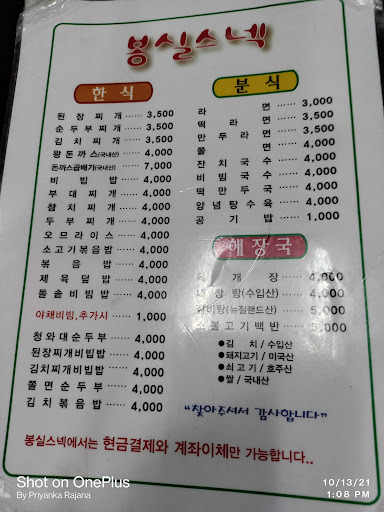 봉실스넥
한식
된장찌개 ····· 3,500
순두부찌개 ··· 3,500
김치찌개 ····· 3,500
왕돈까스(국내산) ··· 4,000
돈까스곱빼기(국내산) ··· 7,000
비빔밥 ······ 4,000
부대찌개 ····· 4,000
참치찌개 ····· 4,000
두부찌개 ····· 4,000
오므라이스 ···· 4,000
소고기볶음밥 ··· 4,000
볶음밥 ······ 4,000
제육덮밥 ····· 4,000
돌솥비빔밥 ···· 4,000
야채비빔,추가시 ··· 1,000
청와대순두부 ··· 4,000
된장찌개비빔밥 ·· 4,000
김치찌개비빔밥 ·· 4,000
쫄면순두부 ···· 4,000
김치볶음밥 ···· 4,000
분식
라면 ······ 3,000
떡라면 ····· 3,500
만두라면 ···· 3,500
쫄면 ······ 4,000
잔치국수 ···· 4,000
비빔국수 ···· 4,000
떡만두국 ···· 4,000
양념탕수육 ··· 4,000
공기밥 ····· 1,000
해장국
개장 ······ 4,000
탕(수입산) ···· 4,000
갈비탕(뉴질랜드산) ··· 5,000
불고기백반 ··· 5,000
●김 치/수입산
●돼지고기/미국산
●쇠고기/호주산
●쌀/국내산
"찾아주셔서 감사합니다"
봉실스넥에서는 현금결제와 계좌이체만 가능합니다..
Shot on OnePlus
By Priyanka Rajana
10/13/21
1:08 PM